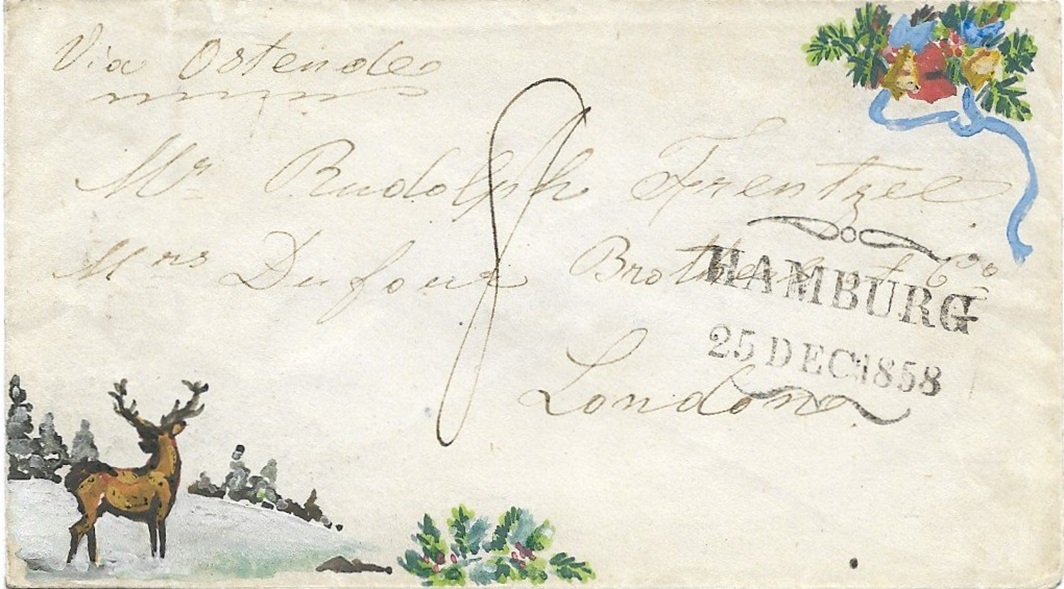 Via Ostende
8
Mr. Rudolph Frentzel
Mrs Dufour Brothers & Co
London
HAMBURG
25 DEC 1858